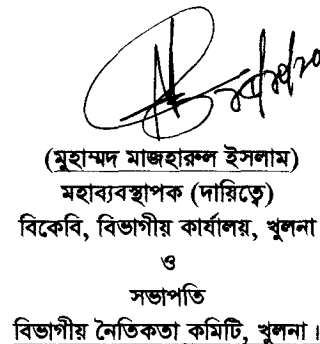 (মুহাম্মদ মাজহারুল ইসলাম)
মহাব্যবস্থাপক (দায়িত্বে)
বিকেবি, বিভাগীয় কার্যালয়, খুলনা
ও
সভাপতি
বিভাগীয় নৈতিকতা কমিটি, খুলনা।